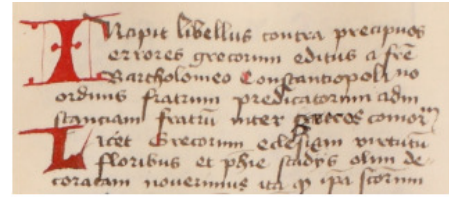 Incipit libellus contra precipuos
errores grecorum editus a frē
Bartholomeo Constantiopolitano
ordinis fratrum predicatorum ad in
stanciam fratrū inter grecos comor
Licet Grecorum eclesiam virtutū
floribus et ph̄ie studijs olim de-
coratam nouerimus ita ꝙ ip̄a